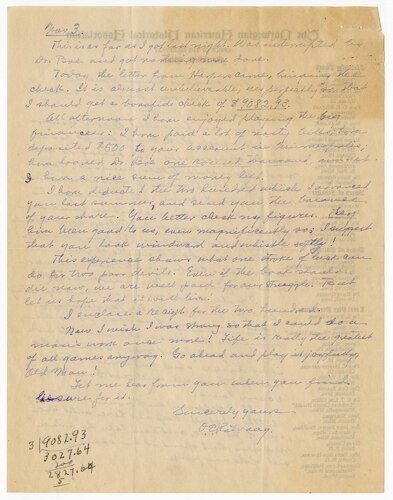 Nov. 3
This is as far as I got last night. Was interrupted by
Dr. Boe and got no more done.
Today the letter from Harpers came, bringing the
check. It is almost unbelievable, yes, perfectly so that
I should get a bonafide check of $9082.93.
All afternoon I have enjoyed planning the big
finances: I have paid a lot of nasty bills, have
deposited $500 to your account in Minneapolis,
have loaned Dr. Boe one thousand, and yet
I have a nice sum of money left.
I have deducted the two hundred which I advanced
you last summer, and send you the balance
of your share. You better check my figures. They
have been good to us, even magnificently so; I suggest
that you look windward and whistle softly!
This experience shows what one stroke of luck can
do for two poor devils. Even if the book should
die now, we are well paid for our struggle. But
let us hope that it will live!
I enclose a receipt for the two hundred.
Now I wish I was strong so that I could do a
man's work once more! Life is really the greatest
of all games anyway. Go ahead and play it joyfully,
Old Man!
Let me hear from you when you find
leisure for it.
Sincerely yours
O E Rölvaag
3 | 9082.93
3027.64
200
2827.64
5